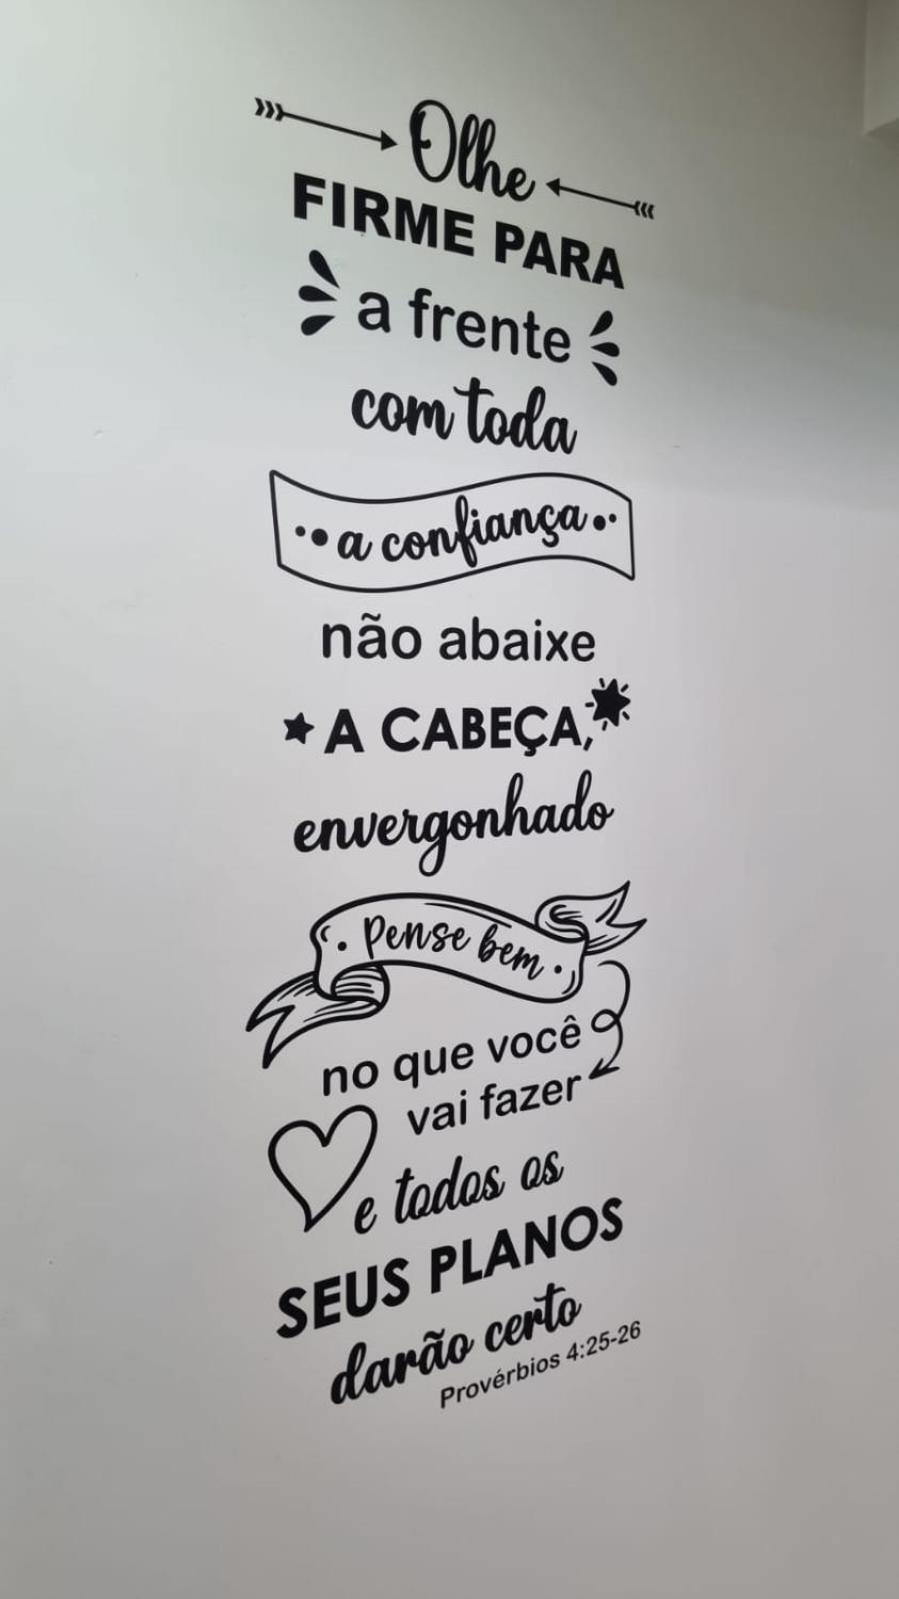 Olhe
FIRME PARA
a frente
com toda
a confiança
não abaixe
A CABEÇA,
envergonhado
Pense bem
no que você
vai fazer
e todos os
SEUS PLANOS
darão certo
Provérbios 4:25-26